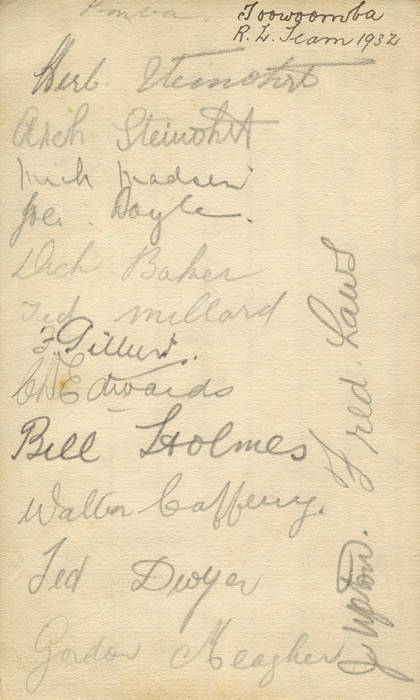 Toowoomba
R. L. Team 1932
Herb. Steinohrt
Arch Steinohrt
Mick Madsen
Joe. Doyle.
Dick Baker
Ted Millard
F. Gilbert.
Edwards
Bill Holmes
Walter Caffery.
Ted Dwyer
Gordon Meagher
Fred. Laws
J Upton.